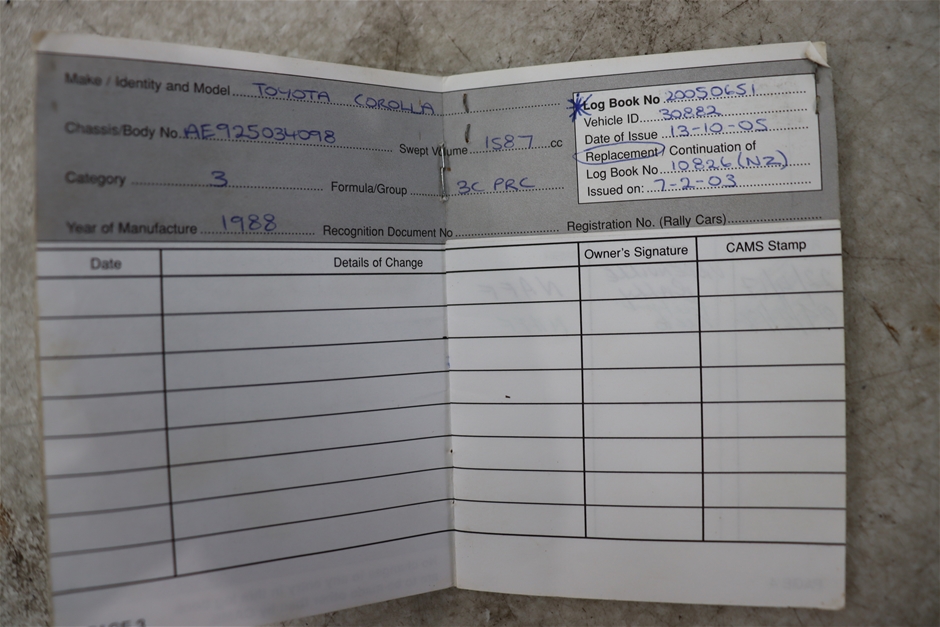 Make / Identity and Model TOYOTA COROLLA
Chassis/Body No. AE925034098
Swept Volume 1587 .cc
Category 3
Formula/Group 3C PRC
Year of Manufacture 1988
Recognition Document No
Registration No. (Rally Cars)
Log Book No 20050651
Vehicle ID 30882
Date of Issue 13-10-05
Replacement / Continuation of
Log Book No 10826 (NZ)
Issued on: 7-2-03
Date Details of Change Owner's Signature CAMS Stamp